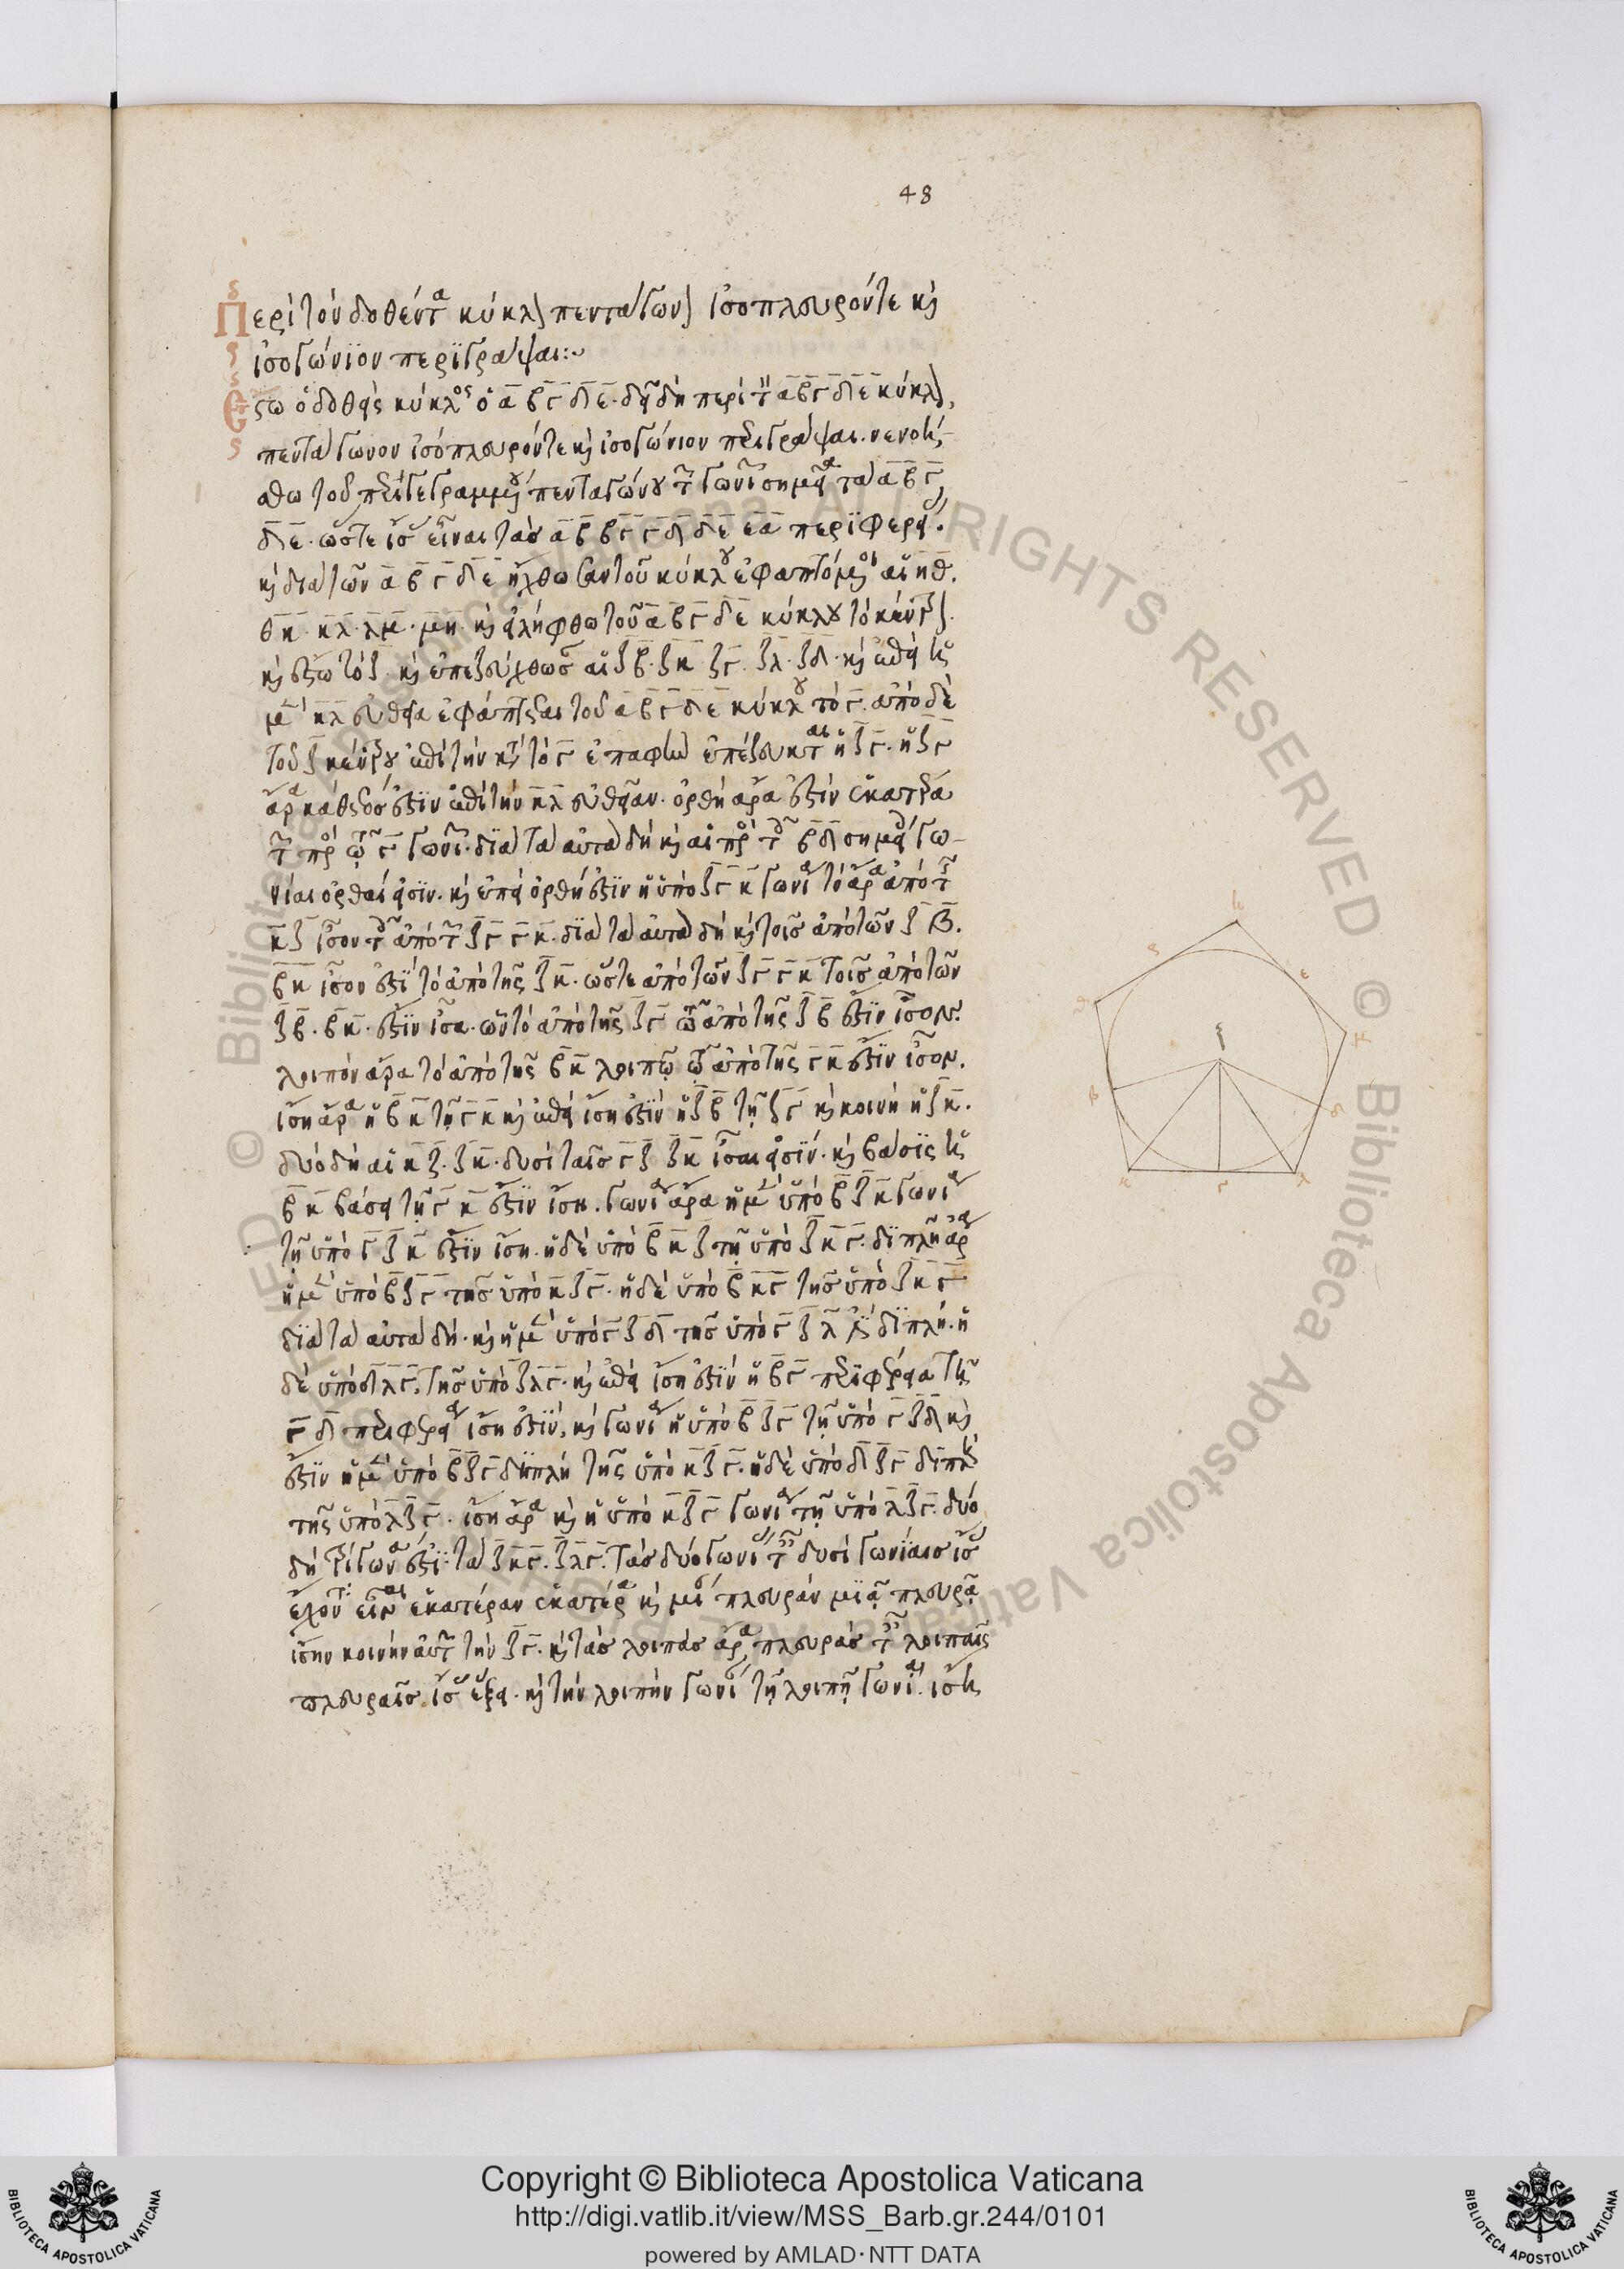 48
Περὶ τὸν δοθέντα κύκλον πεντάγωνον ἰσόπλευρόν τε καὶ
ἰσογώνϊον περϊγράψαι:~
Ἔστω ὁ δοθεὶς κύκλος ὁ α β γ δ ε. δεῖ δὴ περὶ τὸν α β γ δ ε κύκλον,
πεντάγωνον ἰσόπλευρόν τε καὶ ἰσογώνιον περιγράψαι. νενοή-
σθω τοῦ περιγεγραμμένου πενταγώνου τῶν γωνιῶν σημεῖα τὰ α β γ,
δ ε. ὥστε ἴσας εἶναι τὰς α β β γ γ δ δ ε ε α περϊφερείας.
καὶ διὰ τῶν α β γ δ ε ἤχθωσαν τοῦ κύκλου ἐφαπτόμεναι αἱ η θ.
θ κ. κ λ. λ μ. μ η. καὶ εἰλήφθω τοῦ α β γ δ ε κύκλου τὸ κέντρον.
καὶ ἔστω τὸ ζ. καὶ ἐπεζεύχθωσαν αἱ ζ β. ζ κ. ζ γ. ζ λ. ζ δ. καὶ ἐπεὶ ἡ
μὲν κ λ εὐθεῖα ἐφάπτεται τοῦ α β γ δ ε κύκλου τὸ γ. ἀπὸ δὲ
τοῦ ζ κέντρου ἐπὶ τὴν κατὰ τὸ γ ἐπαφὴν ἐπέζευκται ἡ ζ γ. ἡ ζ γ
ἄρα κάθετός ἐστϊν ἐπὶ τὴν κ λ εὐθεῖαν. ὀρθὴ ἄρα ἐστὶν ἑκατέρα
τῶν πρὸς τῷ γ γωνιῶν. δϊὰ τὰ αὐτὰ δὴ καὶ αἱ πρὸς τοῖς β δ σημείοις γω-
νίαι ὀρθαί εἰσϊν. καὶ ἐπεὶ ὀρθή ἐστϊν ἡ ὑπὸ ζ γ κ γωνία τὸ ἄρα ἀπὸ τῆς
κ ζ ἴσον τοῖς ἀπὸ τῶν ζ γ γ κ. δϊὰ τὰ αὐτὰ δὴ καὶ τοῖς ἀπὸ τῶν ζ β.
β κ ἴσον ἐστὶ τὸ ἀπὸ τῆς ζ κ. ὥστε ἀπὸ τῶν ζ γ γ κ τοῖς ἀπὸ τῶν
ζ β. β κ. ἐστϊν ἴσα. ὧν τὸ ἀπὸ τῆς ζ γ τῷ ἀπὸ τῆς ζ β ἐστϊν ἴσον.
λοιπὸν ἄρα τὸ ἀπὸ τῆς β κ λοιπῷ τῷ ἀπὸ τῆς γ κ ἐστϊν ἴσον.
ἴση ἄρα ἡ β κ τῇ γ κ καὶ ἐπεὶ ἴση ἐστϊν ἡ ζ β τῇ ζ γ καὶ κοινὴ ἡ ζ κ.
δύο δὴ αἱ κ ζ. ζ κ. δυσὶ ταῖς γ ζ ζ κ ἴσαι εἰσϊν. καὶ βάσϊς ἡ
β κ βάσει τῇ γ κ ἐστϊν ἴση. γωνία ἄρα ἡ μὲν ὑπὸ β ζ κ γωνία
τῇ ὑπὸ γ ζ κ ἐστϊν ἴση. ἡ δὲ ὑπὸ β κ ζ τῇ ὑπὸ ζ κ γ. δϊπλῆ ἄρα
ἡ μὲν ὑπὸ β ζ γ τῆς ὑπὸ κ ζ γ. ἡ δὲ ὑπὸ β κ γ τῆς ὑπὸ ζ κ γ
δϊὰ τὰ αὐτὰ δὴ. καὶ ἡ μὲν ὑπὸ γ ζ δ τῆς ὑπὸ γ ζ λ ἐστὶ δϊπλῆ. ἡ
δὲ ὑπὸ δ λ γ, τῆς ὑπὸ ζ λ γ. καὶ ἐπεὶ ἴση ἐστϊν ἡ β γ περϊφέρεια τῇ
γ δ περιφερείᾳ ἴση ἐστϊν, καὶ γωνία ἡ ὑπὸ β ζ γ τῇ ὑπὸ γ ζ δ καὶ
ἐστϊν ἡ μὲν ὑπὸ β ζ γ δϊπλῆ τῆς ὑπὸ κ ζ γ. ἡ δὲ ὑπὸ δ ζ γ διπλῆ
τῆς ὑπὸ λ ζ γ. ἴση ἄρα καὶ ἡ ὑπὸ κ ζ γ γωνία τῇ ὑπὸ λ ζ γ. δύο
δὴ τρίγωνά ἐστϊ. τὰ ζ κ γ. ζ λ γ. τὰς δύο γωνίας ταῖς δυσὶ γωνίαις ἴσας
ἔχοντα ἑκατέραν ἑκατέρᾳ καὶ μίαν πλευρὰν μϊᾷ πλευρᾷ
ἴσην κοινὴν αὐτῶν τὴν ζ γ. καὶ τὰς λοιπὰς ἄρα πλευρὰς ταῖς λοιπαῖς
πλευραῖς ἴσας ἕξει. καὶ τὴν λοιπὴν γωνίαν τῇ λοιπῇ γωνίᾳ. ἴση
Copyright © Biblioteca Apostolica Vaticana
http://digi.vatlib.it/view/MSS_Barb.gr.244/0101
powered by AMLAD·NTT DATA